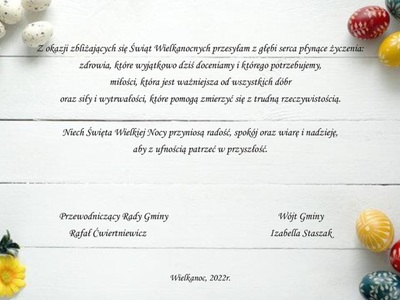 Z okazji zbliżających się Świąt Wielkanocnych przesyłam z głębi serca płynące życzenia:
zdrowia, które wyjątkowo dziś doceniamy i którego potrzebujemy,
miłości, która jest ważniejsza od wszystkich dóbr
oraz siły i wytrwałości, które pomogą zmierzyć się z trudną rzeczywistością.
Niech Święta Wielkiej Nocy przyniosą radość, spokój oraz wiarę i nadzieję,
aby z ufnością patrzeć w przyszłość.
Przewodniczący Rady Gminy Wójt Gminy
Rafał Ćwiertniewicz Izabella Staszak
Wielkanoc, 2022r.